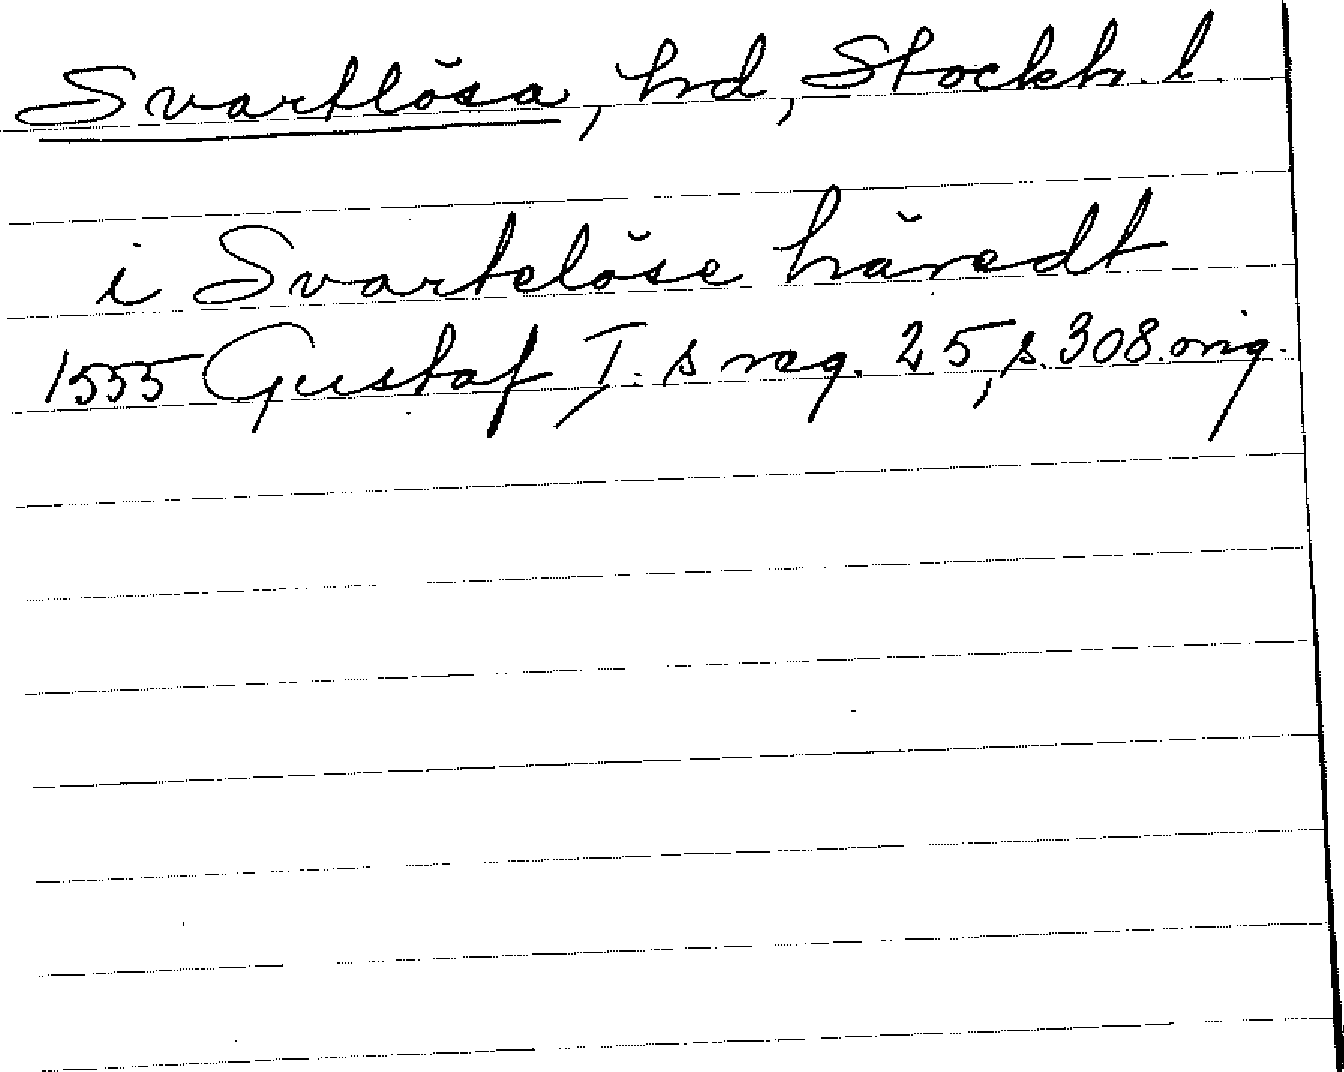 Svartlösa, hd, Stockh. l.
i Svartelöse häredt
1555 Gustaf I:s reg. 25, s. 308. orig.